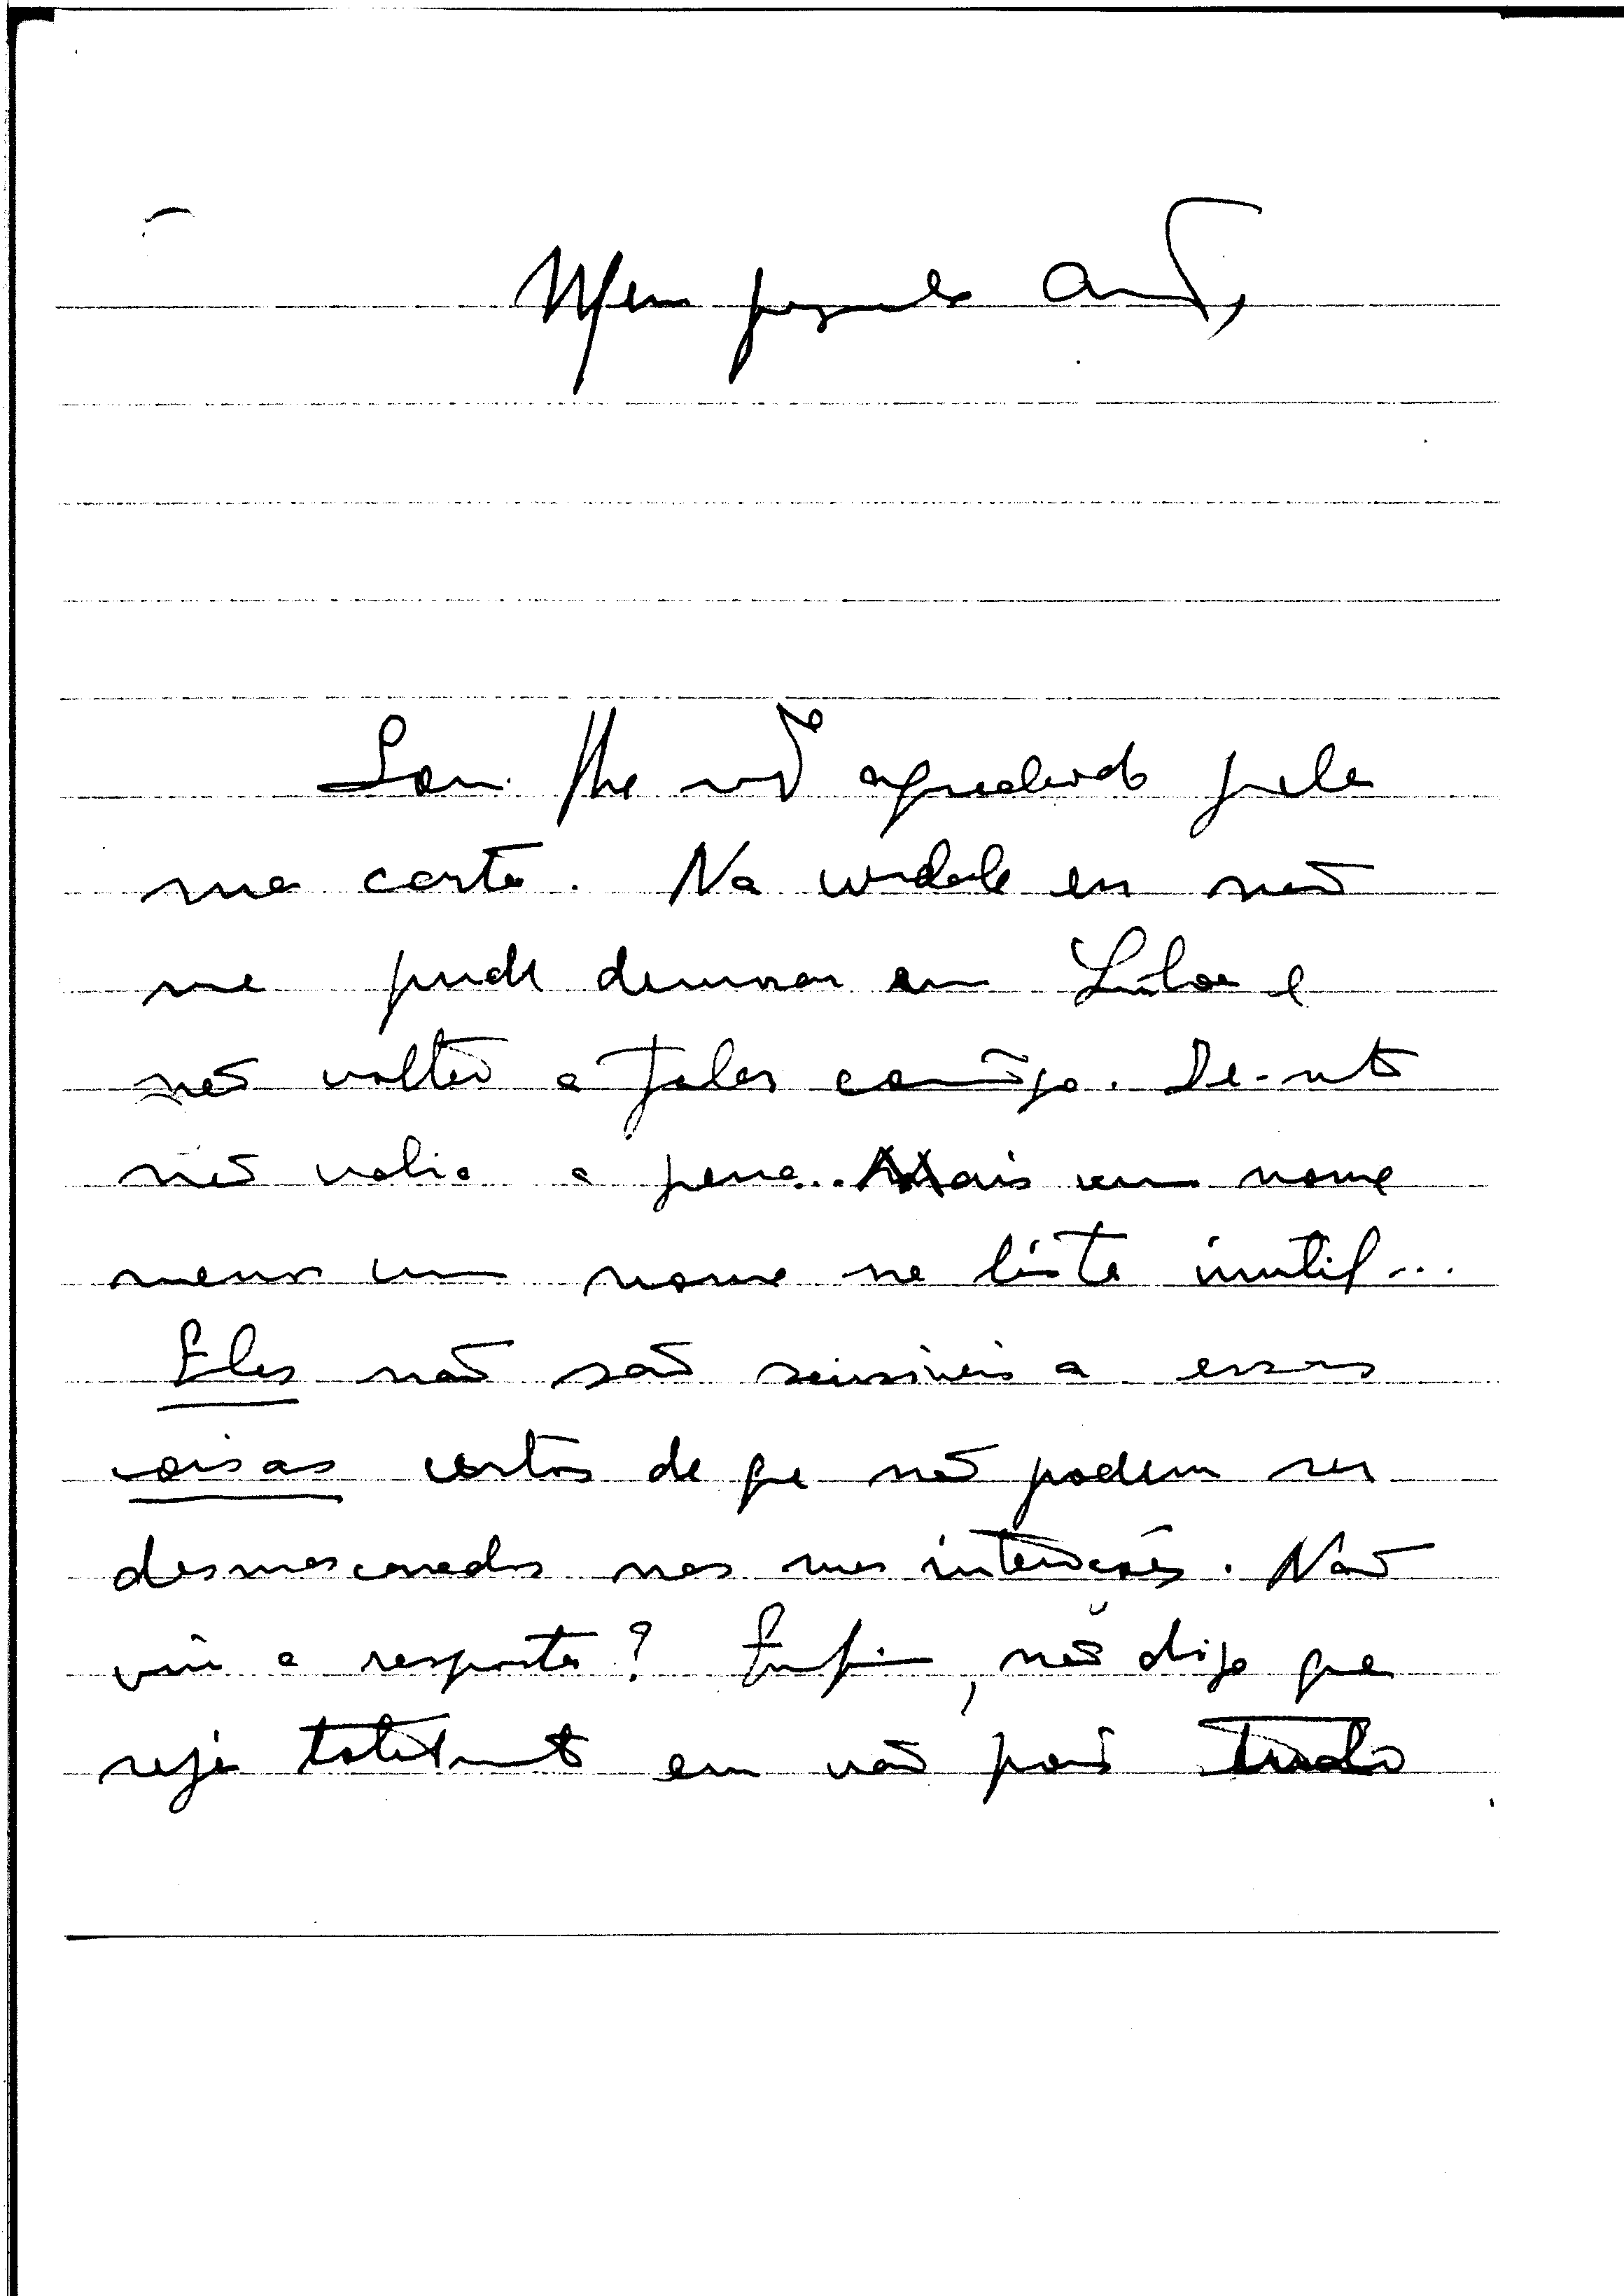 Meu prezado
Sou-lhe mto agradecido pela
sua carta. Na verdade eu não
me pude demorar em Lisboa e
não voltei a falar comigo. De resto
não valia a pena... Mais um nome
menos um nome na lista inutil...
Eles não são sensiveis a essas
coisas certos de que não podem ser
desmascarados nas suas intenções. Não
viu a resposta? Enfim, não digo que
seja totalmente em vão pois tudo